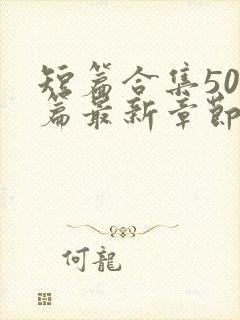 短篇合集50
篇最新章節
何龍